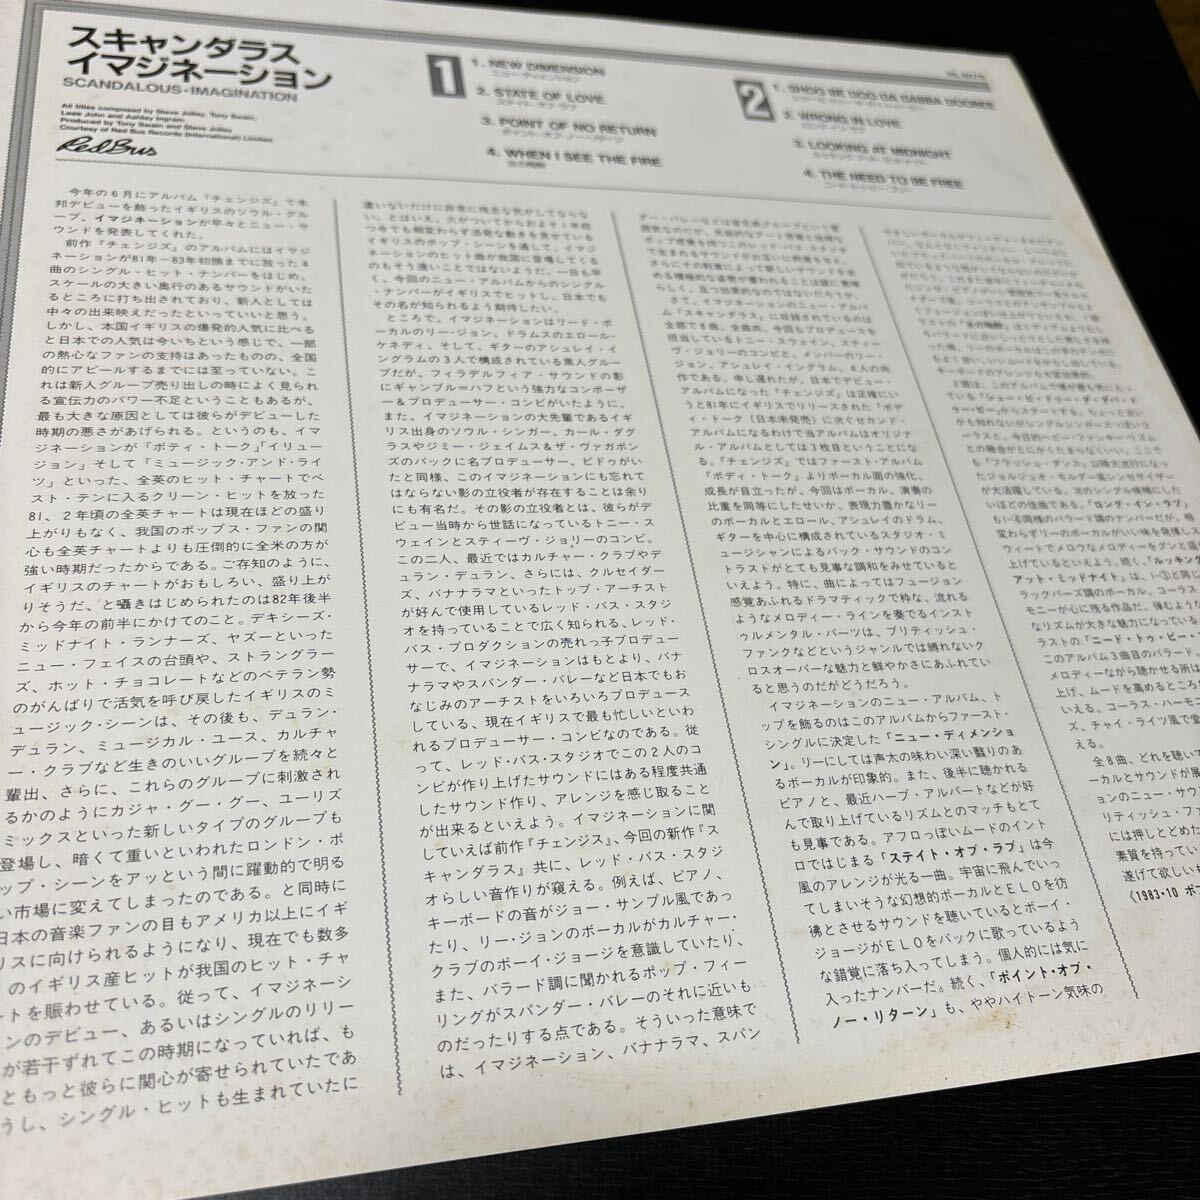 スキャンダラス
イマジネーション
SCANDALOUS·IMAGINATION
All titles composed by Steve Jolley, Tony Swain,
Leee John and Ashley Ingram
Produced by Tony Swain and Steve Jolley
Courtesy of Red Bus Records (International) Limited
Red Bus
1
1. NEW DIMENSION
ニュー・ディメンション
2. STATE OF LOVE
ステイト・オブ・ラブ
3. POINT OF NO RETURN
ポイント・オブ・ノー・リターン
4. WHEN I SEE THE FIRE
2
1. SHOO BE DOO DA DABBA DOOBEE
2. WRONG IN LOVE
ロング・イン・ラブ
3. LOOKING AT MIDNIGHT
ルッキング・アット・ミッドナイト
4. THE NEED TO BE FREE
今年の6月にアルバム『チェンジズ』で本
邦デビューを飾ったイギリスのソウル・グル
ープ、イマジネーションが早々とニュー・サ
ウンドを発表してくれた。
前作『チェンジズ』のアルバムにはイマジ
ネーションが81年〜83年初頭までに放った4
曲のシングル・ヒット・ナンバーをはじめ、
スケールの大きい奥行のあるサウンドがいた
るところに打ち出されており、新人としては
中々の出来映えだったといっていいと思う。
しかし、本国イギリスの爆発的人気に比べる
と日本での人気は今いちという感じで、一部
の熱心なファンの支持はあったものの、全国
的にアピールするまでには至っていない。こ
れは新人グループ売り出しの時によく見られ
る宣伝力のパワー不足ということもあるが、
最も大きな原因としては彼らがデビューした
時期の悪さがあげられる。というのも、イマ
ジネーションが「ボディ・トーク」「イリュー
ジョン」そして「ミュージック・アンド・ライ
ツ」といった、全英のヒット・チャートでベ
スト・テンに入るクリーン・ヒットを放った
81、2年頃の全英チャートは現在ほどの盛り
上がりもなく、我国のポップス・ファンの関
心も全英チャートよりも圧倒的に全米の方が
強い時期だったからである。ご存知のように、
イギリスのチャートがおもしろい、盛り上が
りそうだ、と囁きはじめられたのは82年後半
から今年の前半にかけてのこと。デキシーズ・
ミッドナイト・ランナーズ、ヤズーといった
ニュー・フェイスの台頭や、ストラングラー
ズ、ホット・チョコレートなどのベテラン勢
のがんばりで活気を呼び戻したイギリスのミ
ュージック・シーンは、その後も、デュラン・
デュラン、ミュージカル・ユース、カルチャ
ー・クラブなど生きのいいグループを続々と
輩出、さらに、これらのグループに刺激され
るかのようにカジャ・グー・グー、ユーリズ
ミックスといった新しいタイプのグループも
登場し、暗くて重いといわれたロンドン・ポ
ップ・シーンをアッという間に躍動的で明る
い市場に変えてしまったのである。と同時に
日本の音楽ファンの目もアメリカ以上にイギ
リスに向けられるようになり、現在でも数多
のイギリス産ヒットが我国のヒット・チャ
ートを賑わせている。従って、イマジネーシ
ンのデビュー、あるいはシングルのリリー
が若干ずれてこの時期になっていれば、も
ともっと彼らに関心が寄せられていたであ
うし、シングル・ヒットも生まれていたに
違いないだけに非常に残念な気がしてならな
い。とはいえ、火がついてからおよそ1年経
つ今でも相変わらず活発な動きを見せている
イギリスのポップ・シーンを通して、イマジ
ネーションのヒット曲が我国に登場してくる
のもそう遠いことではないようだ。一日も早
く、今回のニュー・アルバムからのシングル
・ナンバーがイギリスでヒットし、日本でも
その名が知られるよう期待したい。
ところで、イマジネーションはリード・ボ
ーカルのリー・ジョン、ドラムスのエロール・
ケネディ、そして、ギターのアシュレイ・イ
ングラムの3人で構成されている黒人グルー
プだが、フィラデルフィア・サウンドの影
にギャンブル=ハフという強力なコンポーザ
ー&プロデューサー・コンビがいたように、
また、イマジネーションの大先輩であるイギ
リス出身のソウル・シンガー、カール・ダグ
ラスやジミー・ジェイムス&ザ・ヴァガボン
ズのバックに名プロデューサー、ビドゥがい
たと同様、このイマジネーションにも忘れて
はならない影の立役者が存在することは余り
にも有名だ。その影の立役者とは、彼らがデ
ビュー当時から世話になっているトニー・ス
ウェインとスティーヴ・ジョリーのコンビ。
この二人、最近ではカルチャー・クラブやデ
ュラン・デュラン、さらには、クルセイダー
ズ、バナナラマといったトップ・アーチスト
が好んで使用しているレッド・バス・スタジ
オを持っていることで広く知られる、レッド・
バス・プロダクションの売れっ子プロデュー
サーで、イマジネーションはもとより、バナ
ナラマやスパンダー・バレーなど日本でもお
なじみのアーチストをいろいろプロデュース
している、現在イギリスで最も忙しいといわ
れるプロデューサー・コンビなのである。従
って、レッド・バス・スタジオでこの2人のコ
ンビが作り上げたサウンドにはある程度共通
したサウンド作り、アレンジを感じ取ること
が出来るといえよう。イマジネーションに関
していえば前作『チェンジス』、今回の新作『ス
キャンダラス』共に、レッド・バス・スタジ
オらしい音作りが窺える。例えば、ピアノ、
キーボードの音がジョー・サンプル風であっ
たり、リー・ジョンのボーカルがカルチャー・
クラブのボーイ・ジョージを意識していたり、
また、バラード調に聞かれるポップ・フィー
リングがスパンダー・バレーのそれに近いも
のだったりする点である。そういった意味で
は、イマジネーション、バナナラマ、スパン
ダー・バレーなどは皆兄弟グループという雰
囲気なのだが、先鋭的なアート感覚と強烈な
ポップ感覚を持つこのレッド・バス・スタジオ
で生まれるサウンドがお互いに刺激を与え、
さらにその刺激によって新しいサウンドを求
める積極的な姿勢が養われることは誠に素晴
らしく、且つ効果的なのではないだろうか。
さて、イマジネーションのニュー・アルバ
ム『スキャンダラス』に収録されているのは
全部で8曲。全曲共、今回もプロデュースを
担当しているトニー・スウェイン、スティー
ヴ・ジョリーのコンビと、メンバーのリー・
ジョン、アシュレイ・イングラム、4人の共
作である。申し遅れたが、日本でデビュー・
アルバムになった『チェンジズ』は正確にい
うと81年にイギリスでリリースされた『ボデ
ィ・トーク』(日本未発売)に次ぐセカンド・
アルバムになるわけで当アルバムはオリジナ
ル・アルバムとしては3枚目ということにな
る。『チェンジズ』ではファースト・アルバム
『ボディ・トーク』よりボーカル面の強化、
成長が目立ったが、今回はボーカル、演奏の
比重を同等にしたせいか、表現力豊かなリー
のボーカルとエロール、アシュレイのドラム、
ギターを中心に構成されているスタジオ・ミ
ュージシャンによるバック・サウンドのコン
トラストがとても見事な調和をみせていると
いえよう。特に、曲によってはフュージョン
感覚あふれるドラマティックで粋な、流れる
ようなメロディー・ラインを奏でるインスト
ゥルメンタル・パーツは、ブリティッシュ・
ファンクなどというジャンルでは縛れないク
ロスオーバーな魅力と鮮やかさにあふれてい
ると思うのだがどうだろう。
イマジネーションのニュー・アルバム、ト
ップを飾るのはこのアルバムからファースト・
シングルに決定した「ニュー・ディメンショ
ン」。リーにしては声太の味わい深い翳りのあ
るボーカルが印象的。また、後半に聴かれる
ピアノと、最近ハーブ・アルパートなどが好
んで取り上げているリズムとのマッチもとて
も見事である。アフロっぽいムードのイント
ロではじまる「ステイト・オブ・ラブ」は今
風のアレンジが光る一曲。宇宙に飛んでいっ
てしまいそうな幻想的ボーカルとELOを彷
彿とさせるサウンドを聴いているとボーイ・
ジョージがELOをバックに歌っているよう
な錯覚に落ち入ってしまう。個人的には気に
入ったナンバーだ。続く、「ポイント・オブ・
ノー・リターン」も、ややハイトーン気味の
2面は、このアルバムで僕が最も気に入っ
ている「シュー・ビ・ドゥー・ダ・ダバ・ド
ゥービー」からスタートする。
「フラッシュ・ダンス」以降大流行になっ
が大活躍している。次のシングル候補にした
いほどの佳曲である。「ロング・イン・ラブ」
も1-④同様のバラード調のナンバーだが、相
変わらずリーのボーカルがいい味を発揮しス
ウィートでメロウなメロディーをグンと盛
上げているといえよう。続く、「ルッキング
アット・ミッドナイト」は、1-③と同じ
ラックバーズ調のボーカル、コーラス
モニーが心に残る作品だ。弾むような
なリズムが大きな魅力になっている。
ラストの「ニード・トゥ・ビー・
このアルバム3曲目のバラード。
メロディーながら聴かせる所は
上げ、ムードを高めるところが
いえる。コーラス・ハーモニ
ズ、チャイ・ライツ風で堂
える。
全8曲、どれを聴いて
ーカルとサウンドが展
ョンのニュー・サウ
リティッシュ・フ
には押しとどめた
素質を持ってい
遂げて欲しいも
〈1983·10 ポ